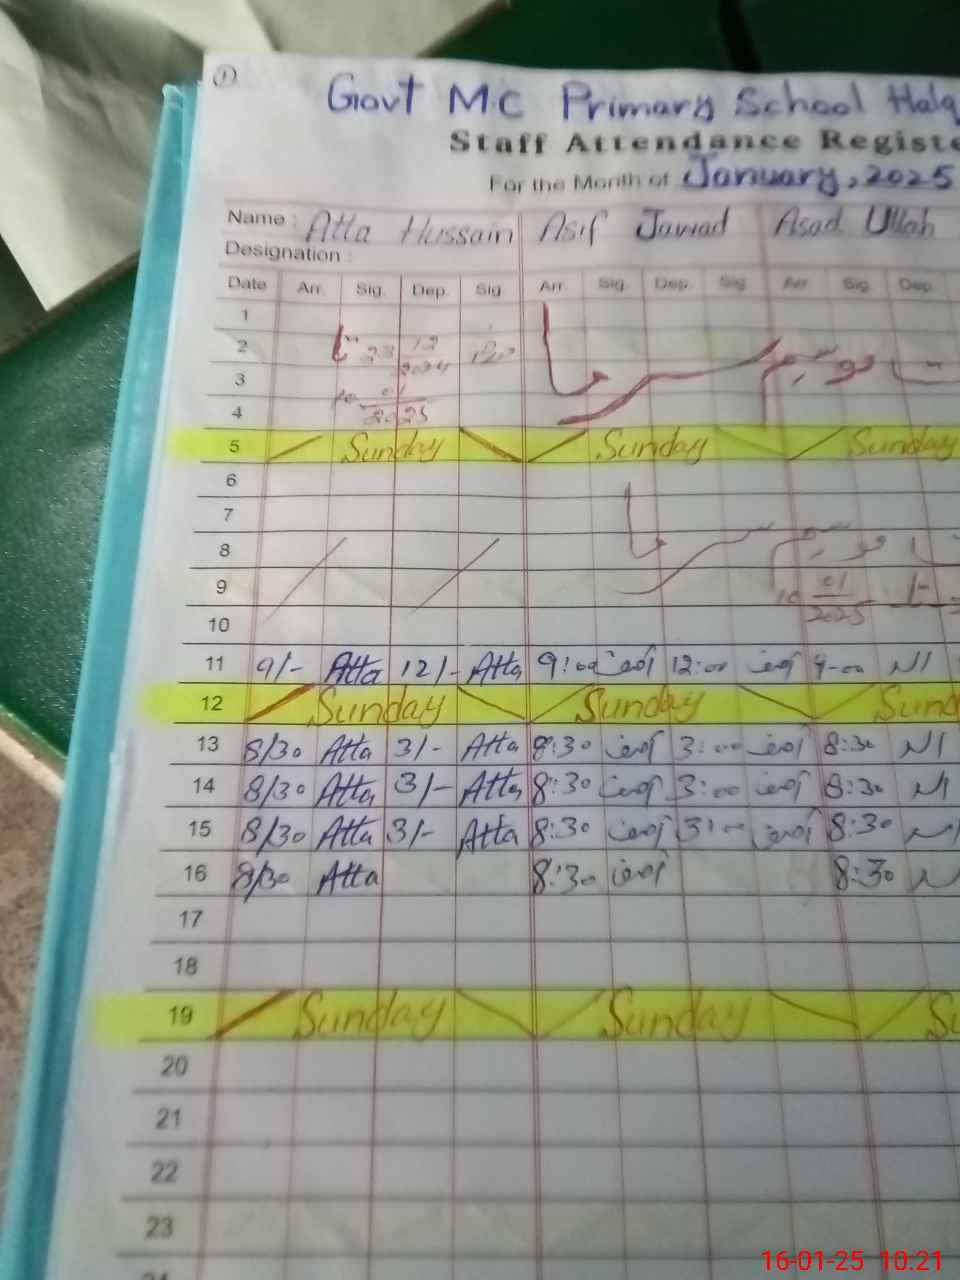 1
Govt M.C Primary School Halq
Staff Attendance Registe
For the Month of January, 2025
Name : Atta Hussain Asif Javiad Asad Ullah
Designation :
Date Arr. Sig. Dep. Sig Arr. Sig. Dep. Sig Arr Sig. Dep.
1
2 23 12
3 2024
10 01
4 2025
5 Sunday Sunday Sunday
6
7
8
9 10 01
10 2025
11 9/- Atta 12/- Atta 9:00 آصف 12:00 آصف 9-00
12 Sunday Sunday Sund
13 8/30 Atta 3/- Atta 8:30 آصف 3:00 آصف 8:30
14 8/30 Atta 3/- Atta 8:30 آصف 3:00 آصف 8:30
15 8/30 Atta 3/- Atta 8:30 آصف 3:00 آصف 8:30
16 8/30 Atta 8:30 آصف 8:30
17
18
19 Sunday Sunday Su
20
21
22
23
24
16-01-25 10:21